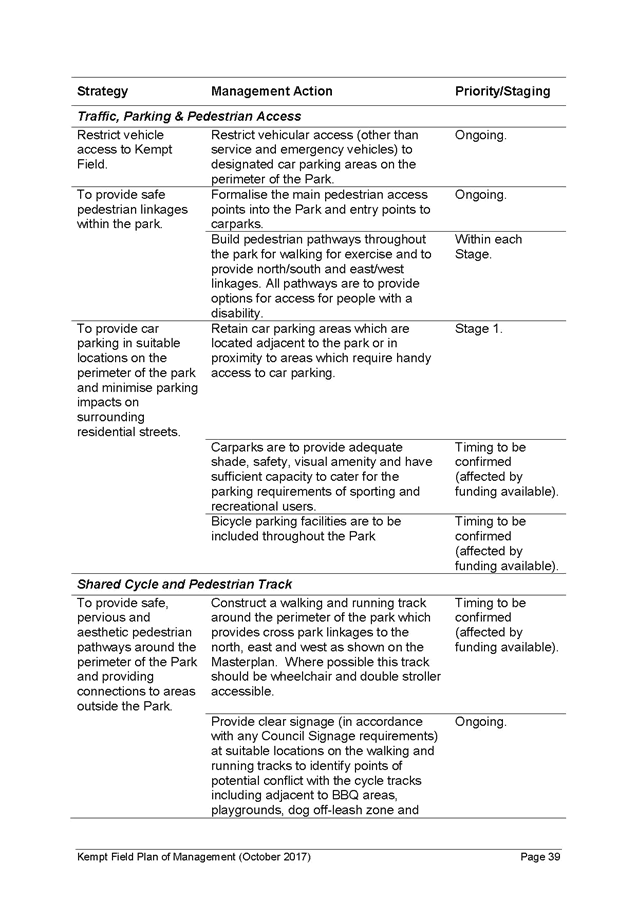 Strategy Management Action Priority/Staging
Traffic, Parking & Pedestrian Access
Restrict vehicle
access to Kempt
Field.
Restrict vehicular access (other than
service and emergency vehicles) to
designated car parking areas on the
perimeter of the Park.
Ongoing.
To provide safe
pedestrian linkages
within the park.
Formalise the main pedestrian access
points into the Park and entry points to
carparks.
Ongoing.
Build pedestrian pathways throughout
the park for walking for exercise and to
provide north/south and east/west
linkages. All pathways are to provide
options for access for people with a
disability.
Within each
Stage.
To provide car
parking in suitable
locations on the
perimeter of the park
and minimise parking
impacts on
surrounding
residential streets.
Retain car parking areas which are
located adjacent to the park or in
proximity to areas which require handy
access to car parking.
Stage 1.
Carparks are to provide adequate
shade, safety, visual amenity and have
sufficient capacity to cater for the
parking requirements of sporting and
recreational users.
Timing to be
confirmed
(affected by
funding available).
Bicycle parking facilities are to be
included throughout the Park
Timing to be
confirmed
(affected by
funding available).
Shared Cycle and Pedestrian Track
To provide safe,
pervious and
aesthetic pedestrian
pathways around the
perimeter of the Park
and providing
connections to areas
outside the Park.
Construct a walking and running track
around the perimeter of the park which
provides cross park linkages to the
north, east and west as shown on the
Masterplan. Where possible this track
should be wheelchair and double stroller
accessible.
Timing to be
confirmed
(affected by
funding available).
Provide clear signage (in accordance
with any Council Signage requirements)
at suitable locations on the walking and
running tracks to identify points of
potential conflict with the cycle tracks
including adjacent to BBQ areas,
playgrounds, dog off-leash zone and
Ongoing.
Kempt Field Plan of Management (October 2017) Page 39